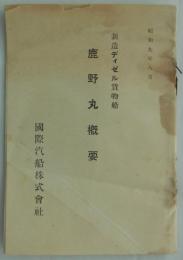 昭和九年八月
新造ディゼル貨物船
鹿野丸概要
國際汽船株式會社